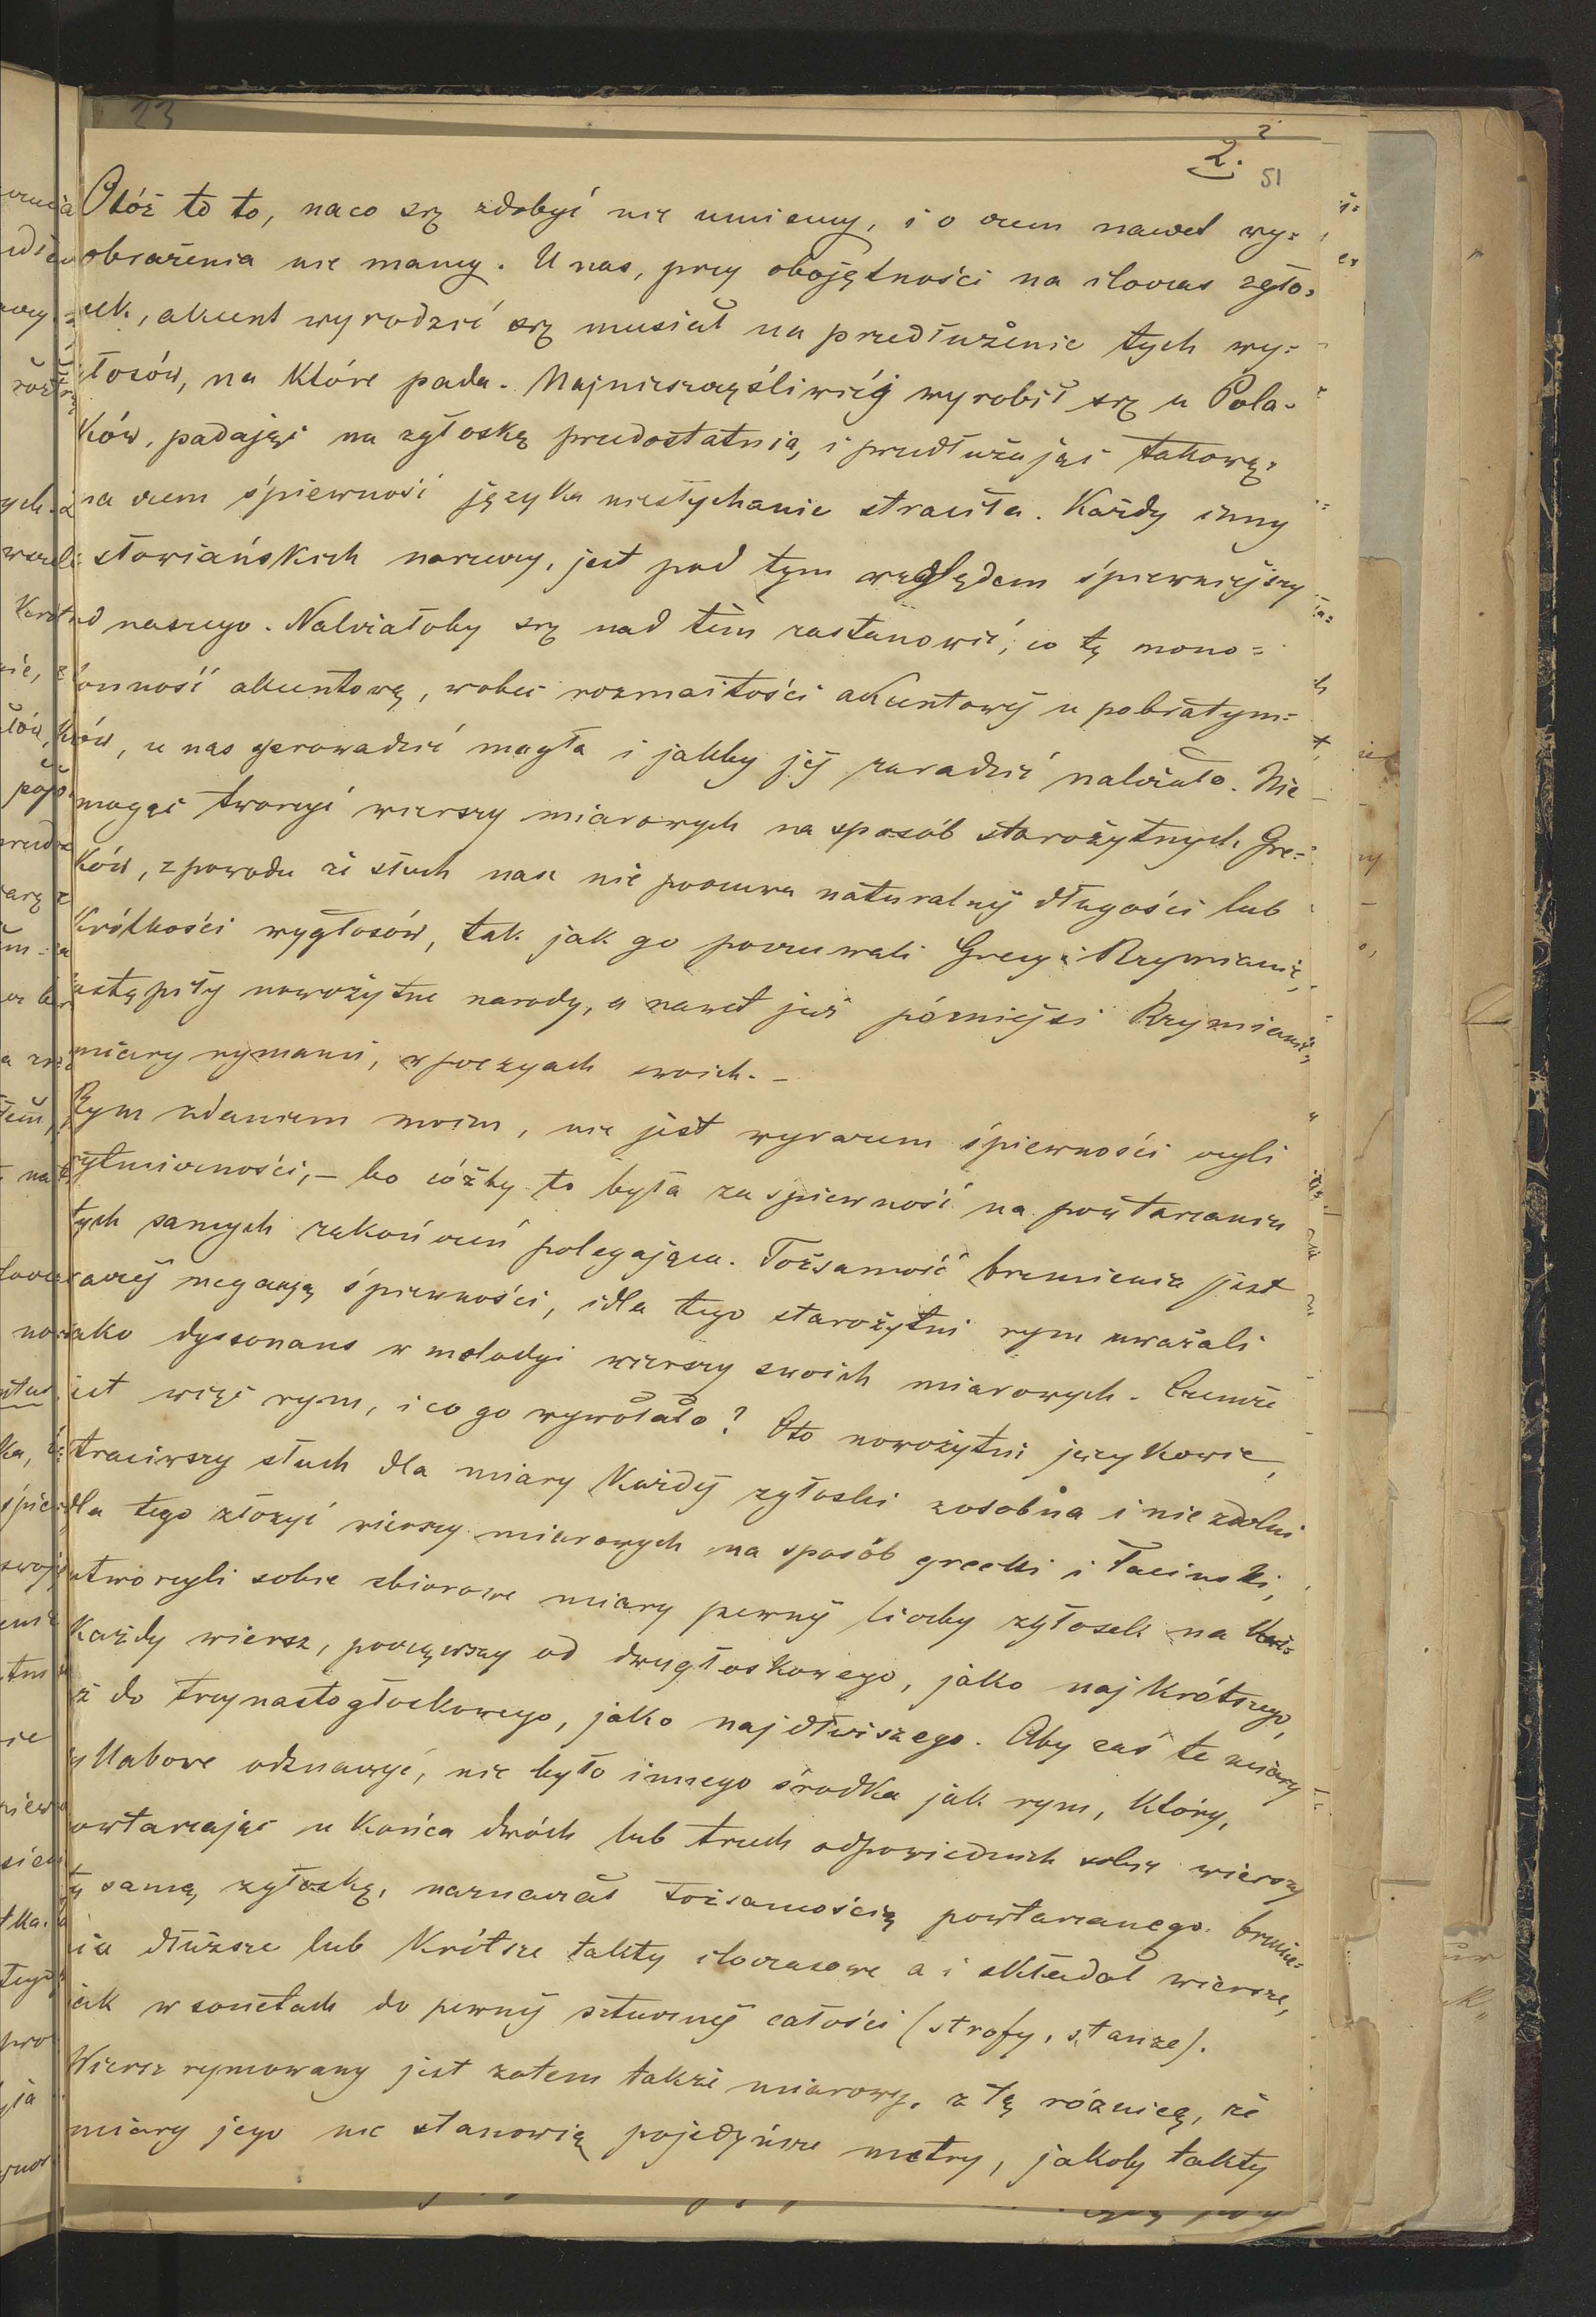 23
2
2.
51
Otóż to to, naco się zdobyć nie umiemy, i o czem nawet wy=
obrażenia nie mamy. U nas, przy obojętności na iloczas zgło=
sek, akcent wyrodzić się musiał na przedłużenie tych wy=
głosów, na które pada. Najnieszczęśliwiéj wyrobił się u Pola-
ków, padając na zgłoskę przedostatnią, i przedłużając takową:
na czem śpiewność języka niesłychanie straciła. Każdy inny
słowiańskich narzeczy, jest pod tym względem śpiewniejszy
od naszego. Należałoby się nad tém zastanowić, co tę mono=
tonność akcentową, wobec rozmaitości akcentowéj u pobratym=
ców, u nas sprowadzić mogła i jakby jéj zaradzić należało. Nie
mogąc tworzyć wierszy miarowych na sposób starożytnych Gre=
ków, z powodu że słuch nasz nie poczuwa naturalnéj długości lub
krótkości wygłosów, tak jak go poczuwali Grecy i Rzymianie,
zastąpiły nowożytne narody, a nawet już późniejsi Rzymianie,
miary rymami, w poezyach swoich. –
Rym zdaniem moim, nie jest wyrazem śpiewności czyli
rytmiczności, – bo cóżby to była za śpiewność na powtarzaniu
tych samych zakończeń polegająca. Tożsamość brzmienia jest
raczéj negacyą śpiewności, i dla tego starożytni rym uważali
jako dyssonans w melodyi wierszy swoich miarowych. Czemże
jest więc rym, i co go wywołało? Oto nowożytni językowie,
straciwszy słuch dla miary każdéj zgłoski zosobna i niezdolni
dla tego złożyć wierszy miarowych na sposób grecki i łaciński,
utworzyli sobie zbiorowe miary pewnéj liczby zgłosek na
każdy wiersz, począwszy od dwugłoskowego, jako najkrótszego,
aż do trzynastogłoskowego, jako najdłuższego. Aby zaś te miary
syllabowe odznaczyć, nie było innego środka jak rym, który,
powtarzając u końca dwóch lub trzech odpowiednich sobie wierszy
tę samą zgłoskę, naznaczał tożsamością powtarzanego brzmie=
nia dłuższe lub krótsze takty iloczasowe a i składał wiersze,
jak w sonetach do pewnéj sztucznéj całości (strofy, stanze).
Wiersz rymowany jest zatem także miarowy, z tą różnicą, że
miary jego nie stanowią pojedyńcze metry, jakoby takty